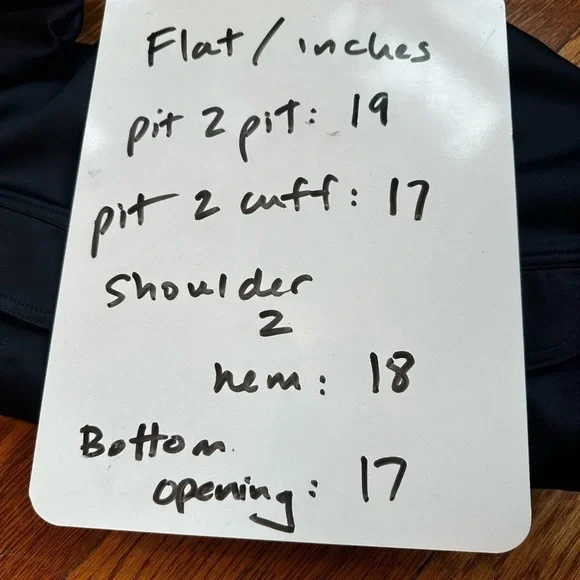 Flat / inches
pit 2 pit: 19
pit 2 cuff: 17
Shoulder
2
hem: 18
Bottom
opening: 17